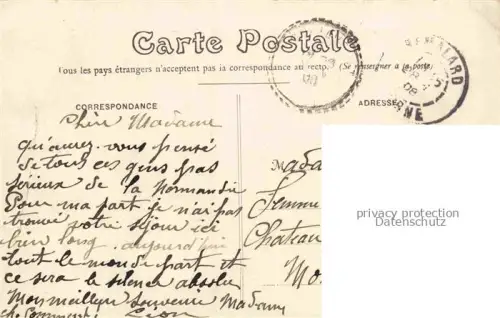 Carte Postale
Tous les pays étrangers n'acceptent pas la correspondance au recto. (Se renseigner à la poste)
CORRESPONDANCE
ADRESSE
RÉMALARD
ORNE
Chère Madame
qu'aurez-vous pensé
de tous ces gens pas
sérieux de la Normandie
Pour ma part je n'ai pas
trouvé votre séjour ici
bien long. aujourd'hui
tout le monde part et
ce sera le silence absolu
Mes meilleurs souvenirs Madame
Madame
Femme
Chateau
Mo
privacy protection
Datenschutz